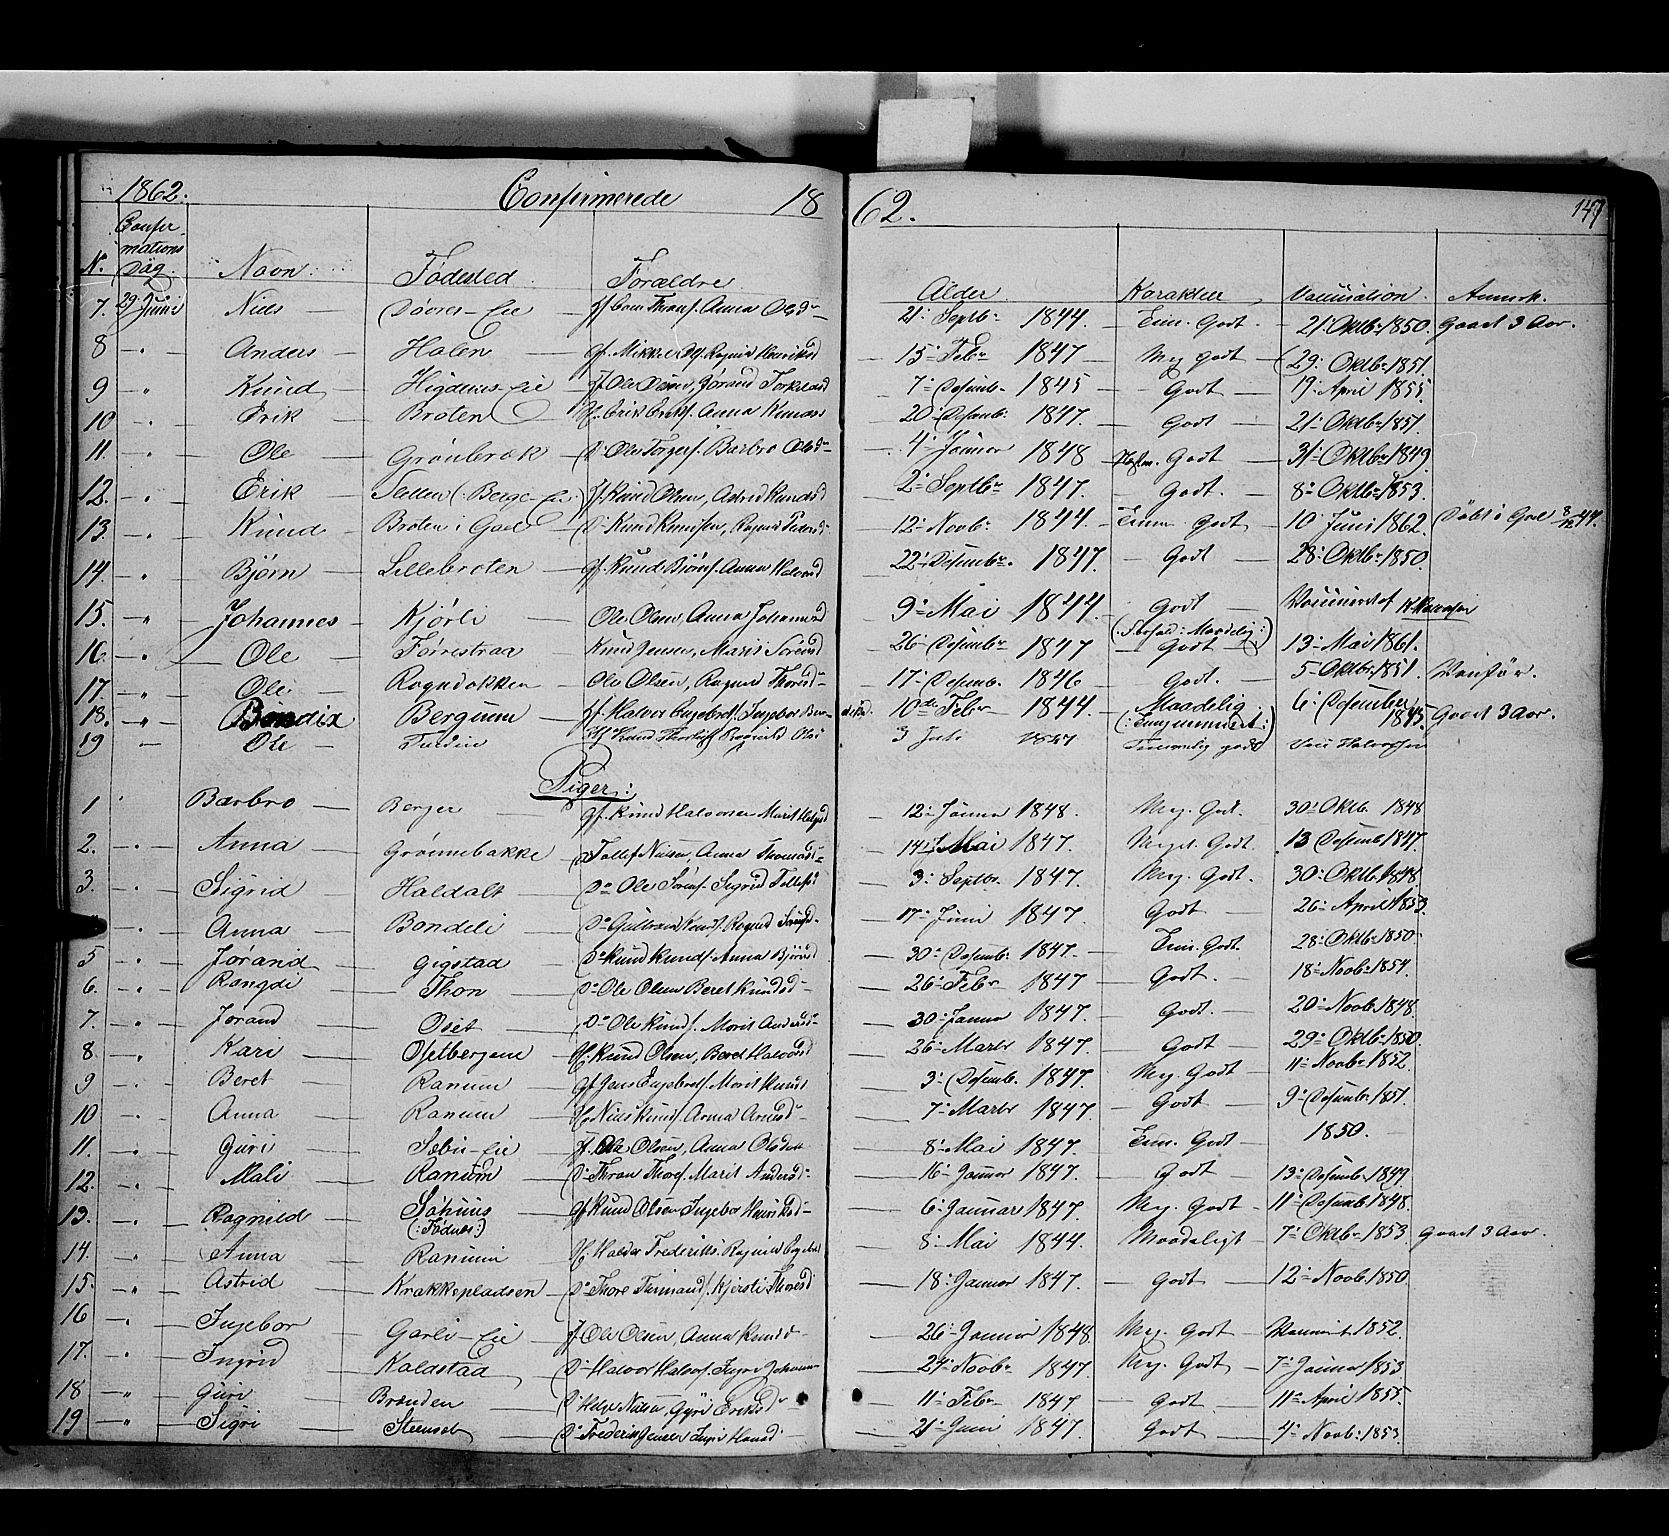 1862. Confirmerede 1862. 147
N. Confirmations Dag. Navn: Fødested. Forældre Alder. Karakteer Vaccination. Anmrk.
7. 29 Juni Niels Dovre-Eie Anna Olsd 21 Septbr 1844. Em. Godt. 21 Oktbr 1850. Gaaet 3 Aar.
8 Anders Halen Ragnid Henriksd 15 Febr 1847 Meg godt 29 Oktbr 1851.
9 Knud Eie Ole Jorand Torkelsd 7 Desemb. 1845 Godt 19 April 1855.
10 Erik Broten Erik Anna Knuds 20 Desemb: 1847. Godt 21 Oktbr 1851.
11. Ole Grønbrok Do Ole Barbro Olsd 4 Januar 1848 Godt 31 Oktbr 1849.
12. Erik Sletten (: Berge-Eie:) Knud Olsen, Astrid Knudsd 2 Septbr 1847. Godt. 8 Oktbr 1853.
13. Knud Broten i Goel Do Knud Knudsen, Ragnid 12 Novb. 1844. Godt 10 Juni 1862. Døbt i Goel 8/12 44.
14. Bjørn Lillebroten Gf. Knud Bjørns. Anna Halvorsd 22 Desembr. 1847. Godt 28 Oktbr 1850.
15. Johannes Kjørli Ole Olsen, Anna Johannesd 9 Mai 1844. Godt Vaccineret af
16. Ole Førrestraa Knud Jensen, Marit Sorensd 26 Desembr 1847 (: Maadelig:) Godt 13 Mai 1861.
17. Ole Rogndokken Ole Olsen, Ragnid Thoresd 17 Desemb. 1846 Godt. 5 Oktbr 1851. Vanfør.
18. Bendix Bergum Gf. Halvor Engebrets. Ingebor 10de Febr 1844. Maadelig 6 Desember 1845. Gaaet 3 Aar.
19 Ole Knud Ragnild Olsd 3 Juli Temmelig godt Halvorsen
Piger:
1 Barbro Berger Gf. Knud Halvorsen Marit Helgesd 12 Januar 1848. Meg. Godt. 30 Oktb. 1848
2. Anna Grønnebakke Tollef Nielsen, Anna Thomasd 14 Mai 1847. Meget Godt. 13 Desemb 1847.
3. Sigrid Haldalt Do Ole Sørens. Sigrid Tollefsd 3 Septbr. 1847. Meg. Godt. 30 Oktb 1848
Anna Bondeli Do Gulbran Knuds. Ragnid 17 Juni 1847. Godt 26 April 1853.
5 Jørand Gigstad Do Knud Knuds. Anna Bjørnsd 30 Desemb. 1847. Em. Godt. 28 Oktb. 1850
6. Rangdi Thon Do Ole Olsen Beret Knudsd 26 Febr 1847 Godt. 18 Novb. 1854.
7. Jorand Oset Do Ole Knuds. Marit Andersd 30 Januar 1847. Godt. 20 Novb 1848.
8. Kari Osetbergene Hf. Knud Olsen, Beret Halvorsd 26 Marts 1847. Godt 29 Oktbr 1850.
9 Beret Ranum Gf Jens Engebrets. Marit Knudsd 3 Desemb. 1847. Meg. Godt 11 Novbr 1852.
10 Anna Ranum Hf Niels Knuds. Anna Arnesd 7 Marts 1847. Godt 9 Desembr 1851.
11. Guri Sæbu-Eie Jf. Ole Olsen, Anna Olsdatt 8 Mai 1847. Em. Godt 1850.
12. Mali Ranum Do Thron Thors. Marit Andersd 16 Januar 1847. Godt 13 Desemb. 1849.
13. Ragnild Søhuus (: Fødnæs:) Gf Knud Olsen Ingebor Henriksd 6 Januar 1847. Meg. Godt 11 Desemb 1848.
14. Anna Ranum Hf. Halvor Frederiks. Ragnild 8 Mai 1844. Maadeligt 7 Oktbr 1853 Gaaet 3 Aar.
15. Astrid Krakkepladsen Do Thore Kjersti Thoresd 18 Januar 1847. Godt 12 Novb. 1850.
16 Ingebor Garli-Eie Jf Ole Olsen, Anna Knudsd 26 Januar 1848. Meg. Godt 1852.
17. Ingrid Kaldstad Do Halvor Halvors. 27 Novbr 1847. Meg. Godt 7 Januar 1853
18 Guri Brænden Do Helge Nielsen, Gyri Eriksd 11 Febr 1847 Godt 11te April 1855.
19 Sigri Steensæt Do Frederik Jensen 21 Juni 1847. Godt 4 Novb. 1853.